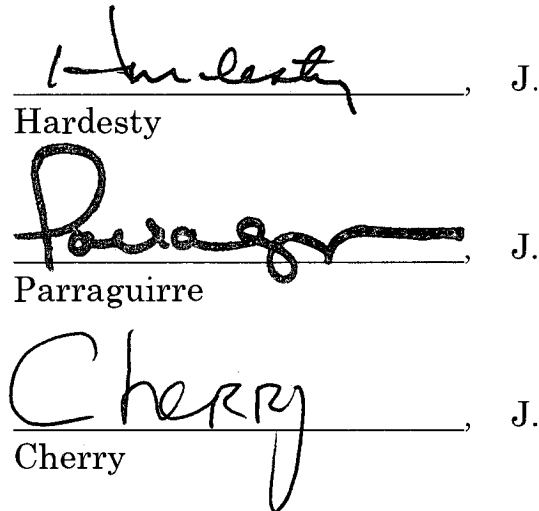 Hardesty, J.
Hardesty
Parraguirre, J.
Parraguirre
Cherry, J.
Cherry